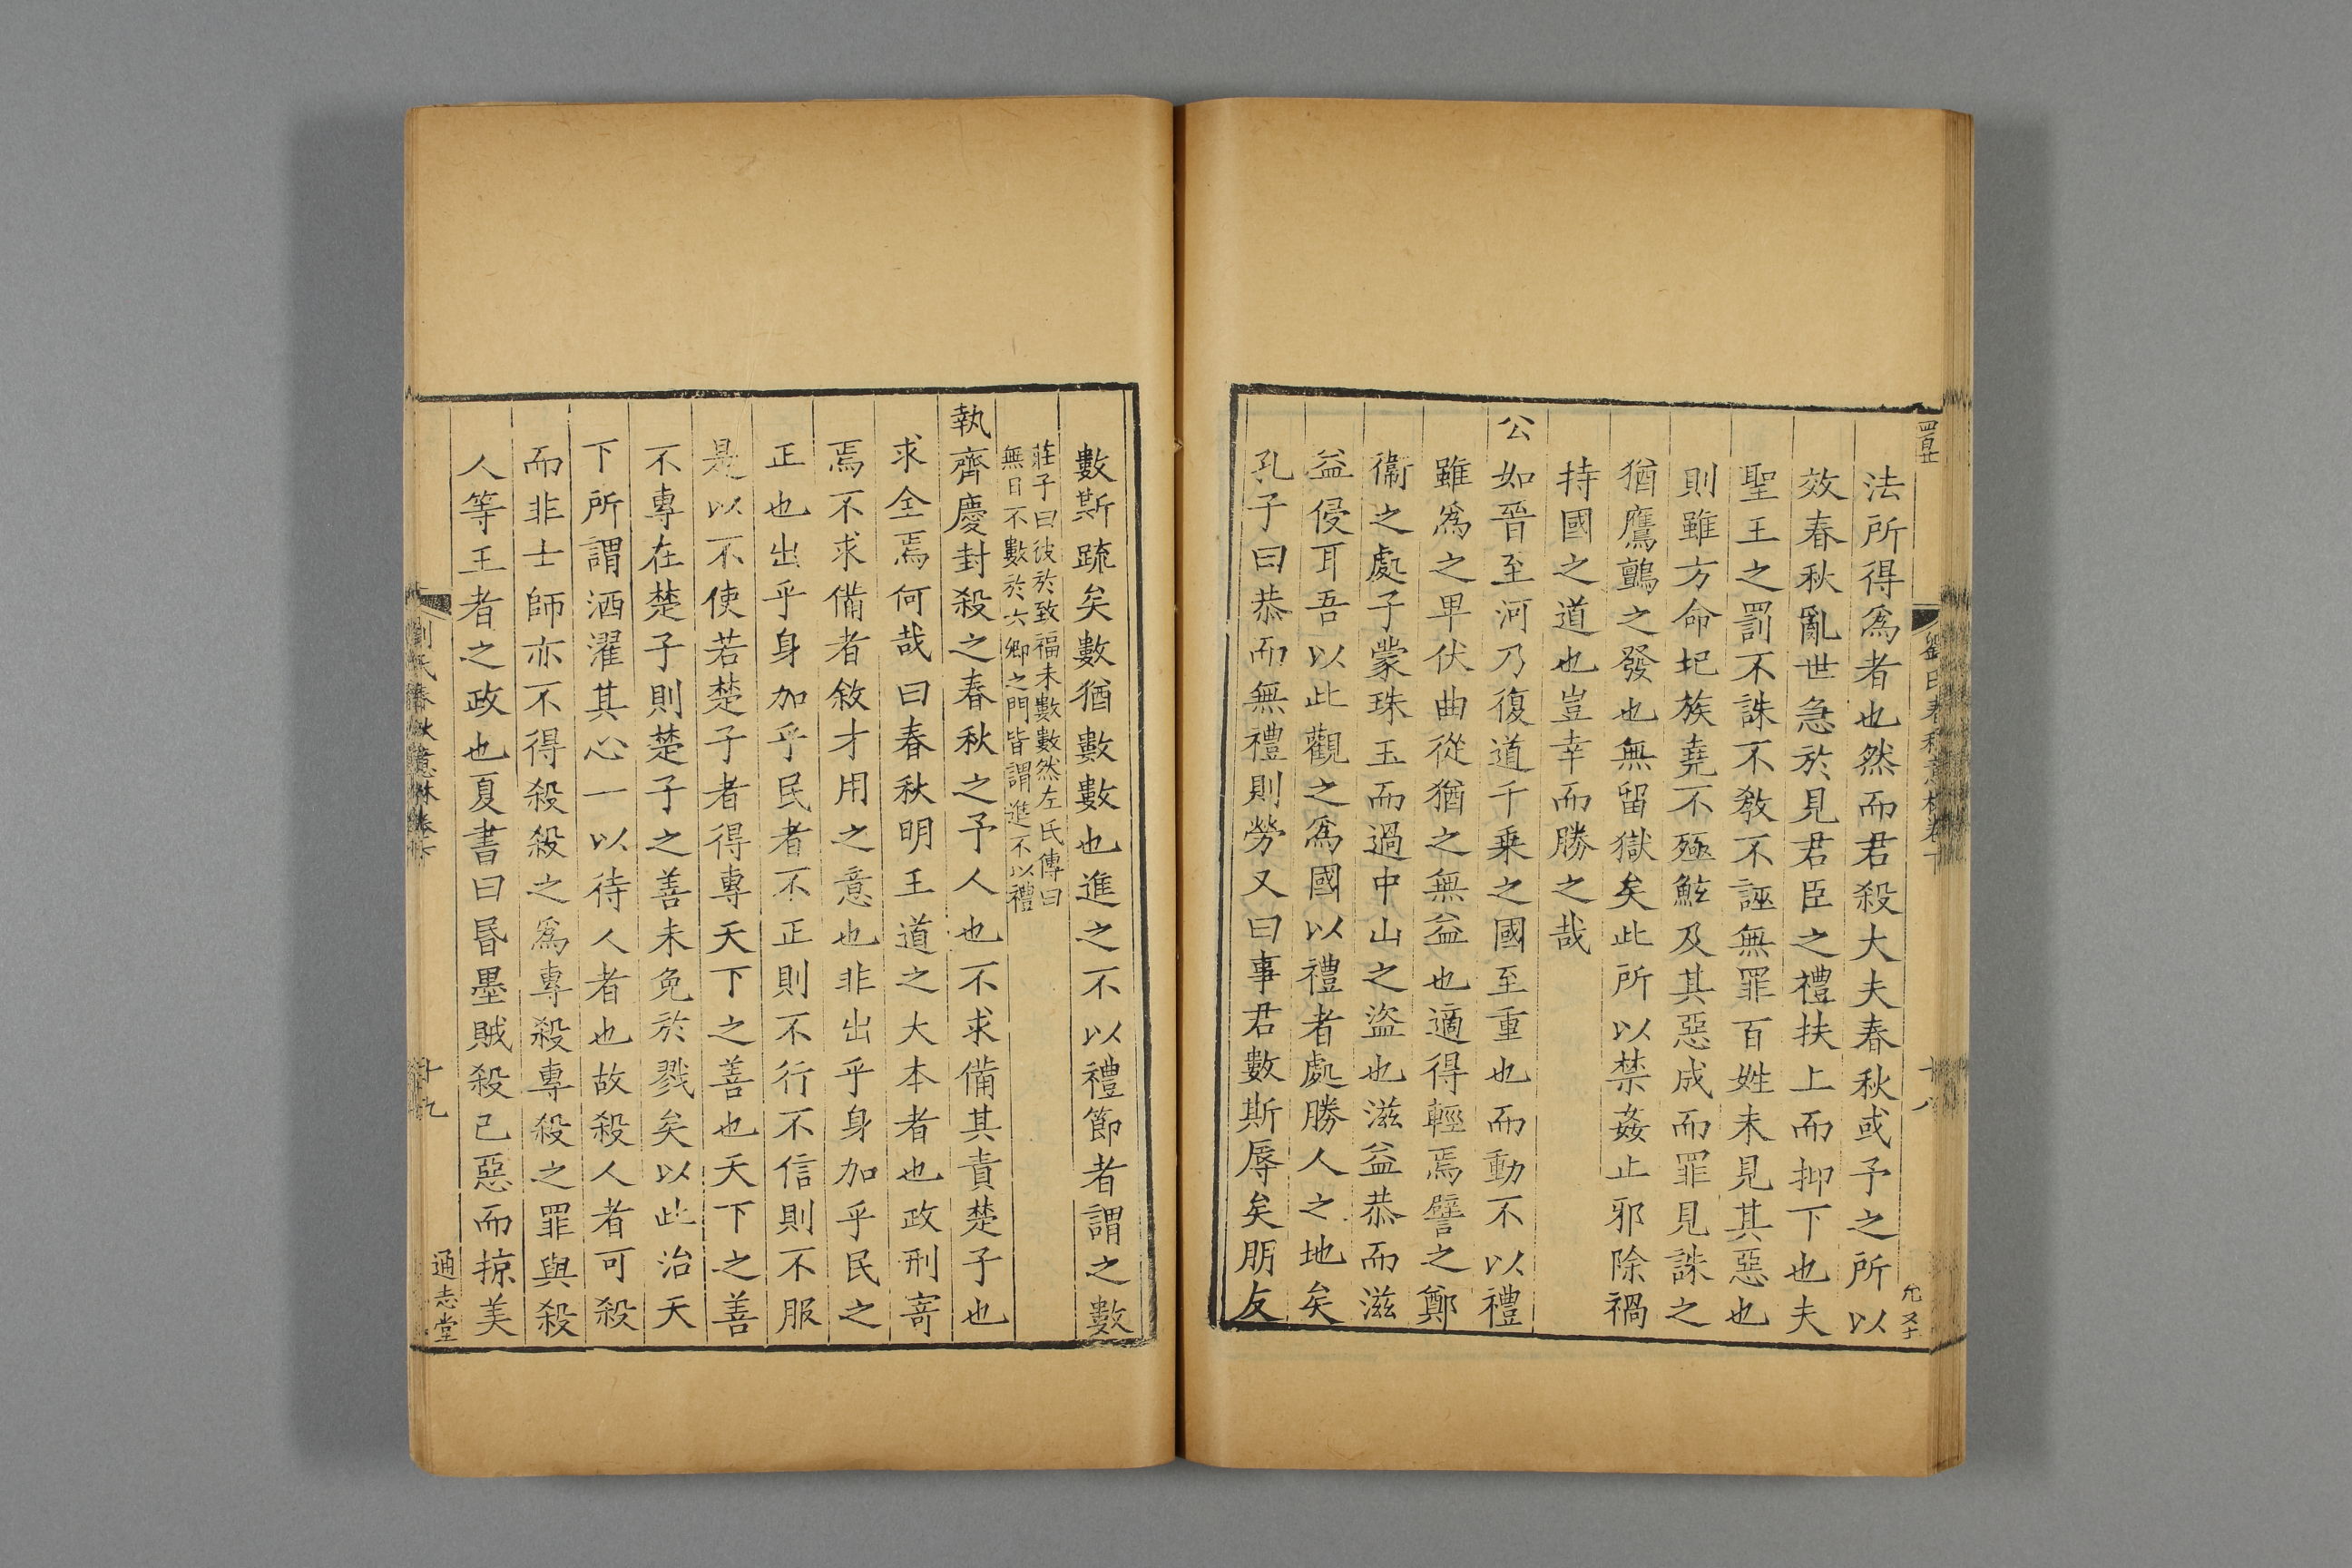 法所得爲者也然而君殺大夫春秋或予之所以
效春秋亂世急於見君臣之禮扶上而抑下也夫
聖王之罰不誅不敎不誣無罪百姓未見其惡也
則雖方命圮族堯不殛鮌及其惡成而罪見誅之
猶鷹鸇之發也無留獄矣此所以禁姦止邪除禍
持國之道也豈幸而勝之哉
公如晉至河乃復道千乗之國至重也而動不以禮
雖爲之卑伏曲從猶之無益也適得輕焉譬之鄭
衞之處子蒙珠玉而過中山之盜也滋益恭而滋
益侵耳吾以此觀之爲國以禮者處勝人之地矣
孔子曰恭而無禮則勞又曰事君數斯辱矣朋友
數斯疏矣數猶數數也進之不以禮節者謂之數
莊子曰彼於致福未數數然左氏傳曰
無日不數於六卿之門皆謂進不以禮
執齊慶封殺之春秋之予人也不求備其責楚子也
求全焉何哉曰春秋明王道之大本者也政刑寄
焉不求備者敘才用之意也非出乎身加乎民之
正也出乎身加乎民者不正則不行不信則不服
是以不使若楚子者得專天下之善也天下之善
不專在楚子則楚子之善未免於戮矣以此治天
下所謂洒濯其心一以待人者也故殺人者可殺
而非士師亦不得殺殺之爲專殺專殺之罪與殺
人等王者之政也夏書曰昏墨賊殺己惡而掠美
劉氏春秋意林卷下
十九
通志堂